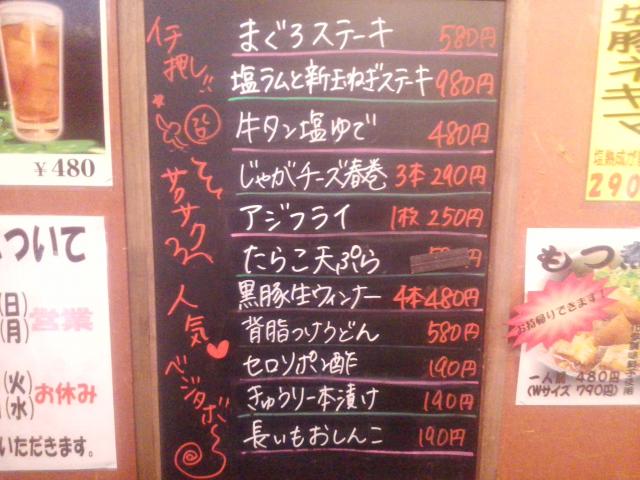 イチ押し!!
まぐろステーキ 580円
塩ラムと新玉ねぎステーキ 980円
牛タン塩ゆで 480円
サクサク
じゃがチーズ春巻 3本 290円
アジフライ 1枚 250円
たらこ天ぷら
人気
黒豚生ウィンナー 4本 480円
背脂つけうどん 580円
ベジタボ〜
セロリポン酢 190円
きゅうり一本漬け 190円
長いもおしんこ 190円
¥480
ついて
(日)
(月) 営業
(火)
(水) お休み
いただきます。
塩豚ネギマ
塩熟成が
290
もつ煮
お持帰りできます!
一人前 480円
(Wサイズ 790円)